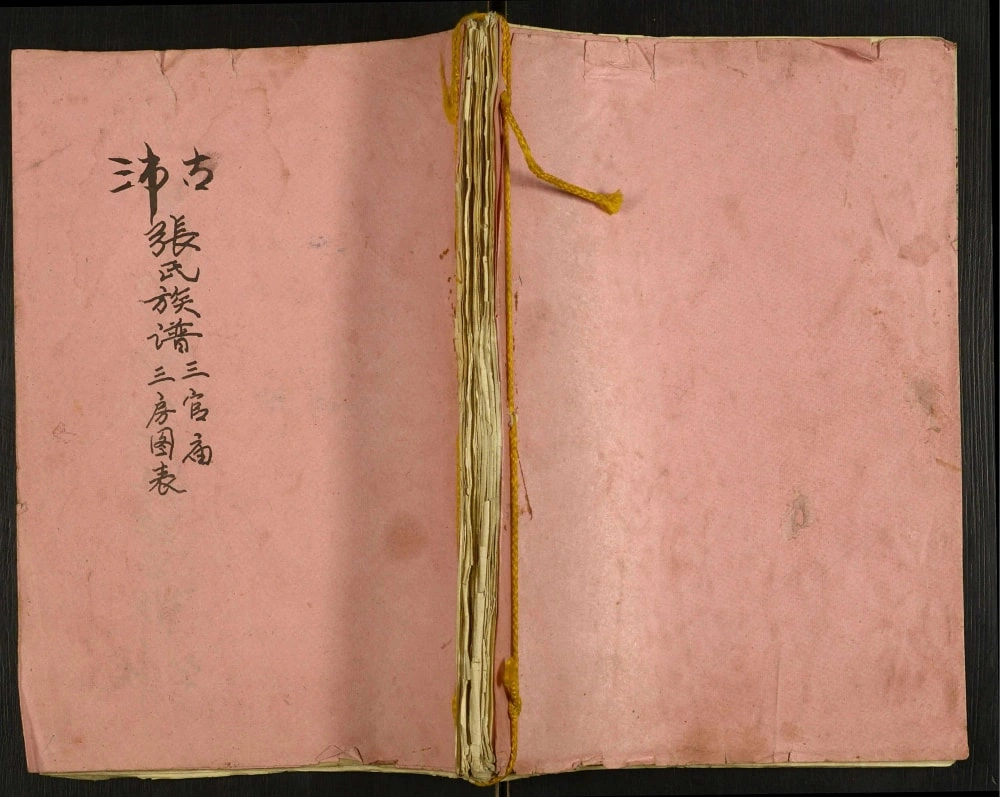 古沛
張氏族谱
三官庙
三房图表